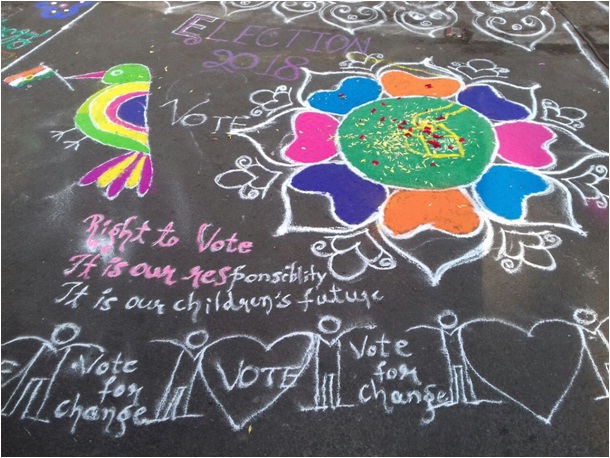 ELECTION
2018
VOTE
Right to Vote
It is our responsiblity
It is our children's future
Vote
for
change
VOTE
Vote
for
change